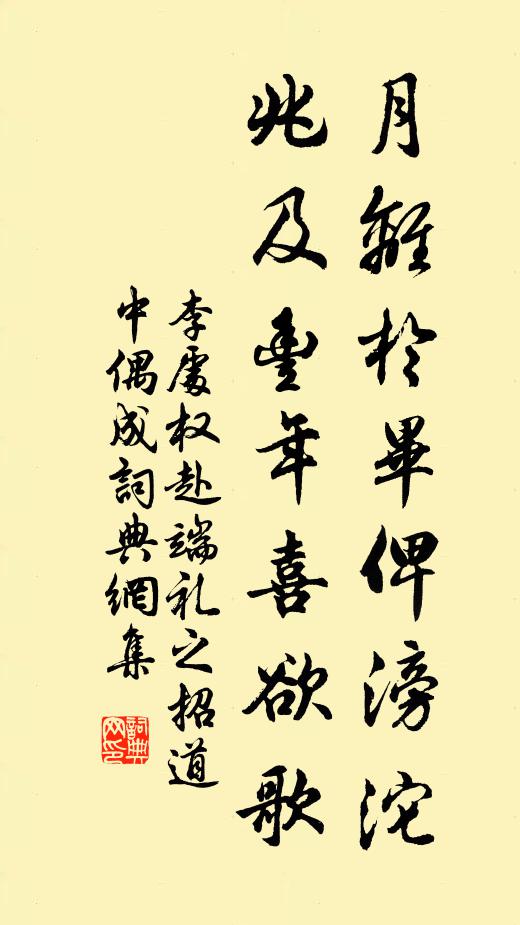 月離於畢俾滂沱
兆及豐年喜欲歌
李處权赴端礼之招道
中偶成詞典網集
詞典
网印